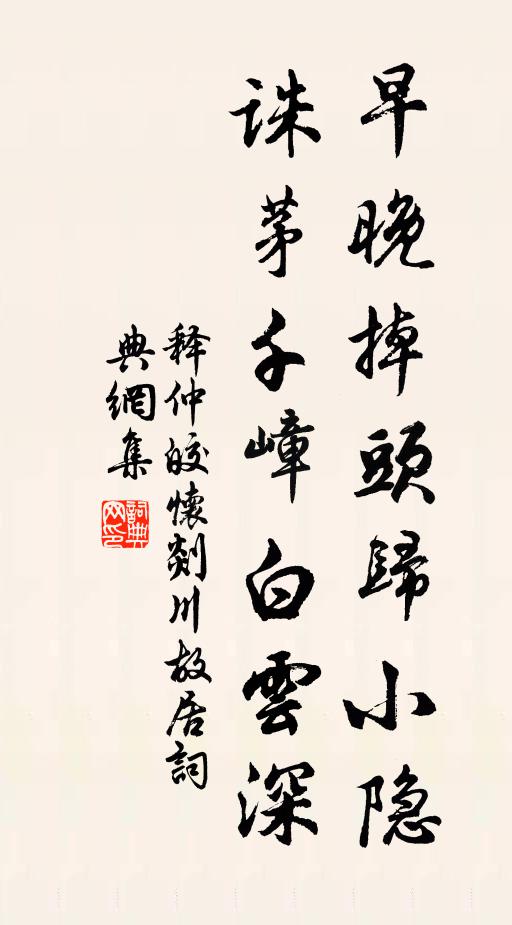 早晚掉頭歸小隐
誅茅千嶂白雲深
释仲皎懷剡川故居詞
典網集
詞典网印